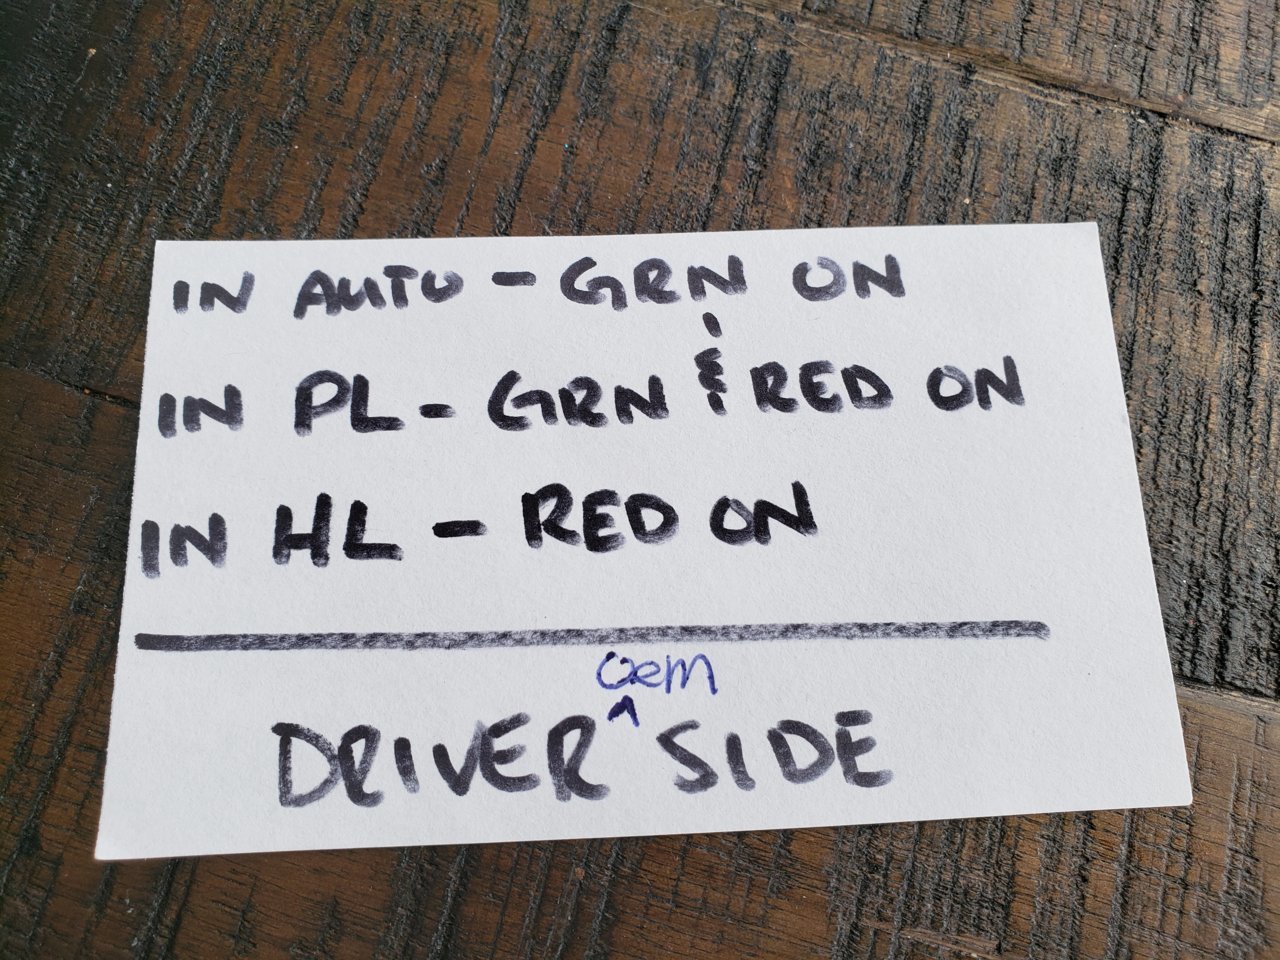 IN AUTO - GRN ON
IN PL - GRN & RED ON
IN HL - RED ON
oem
DRIVER ^ SIDE